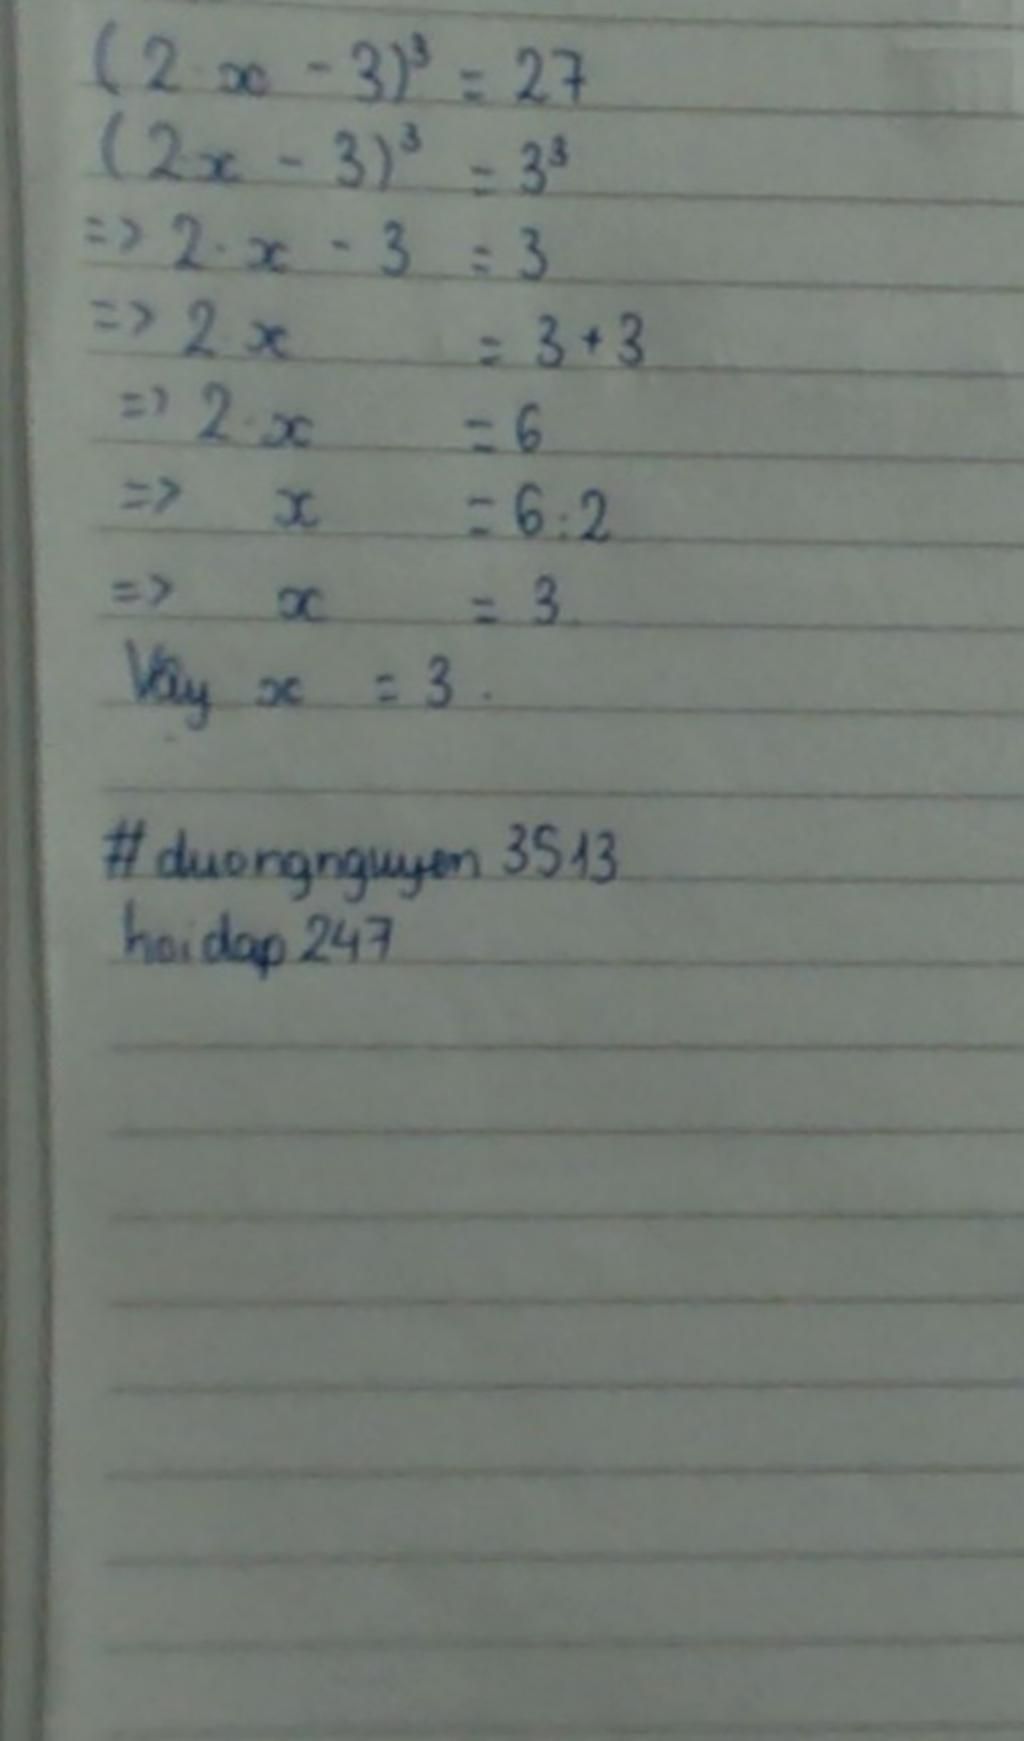 (2·x - 3)³ = 27
(2x - 3)³ = 3³
=> 2·x - 3 = 3
=> 2·x = 3 + 3
=> 2·x = 6
=> x = 6:2
=> x = 3.
Vậy x = 3.
#duongnguyen3513
hoidap247